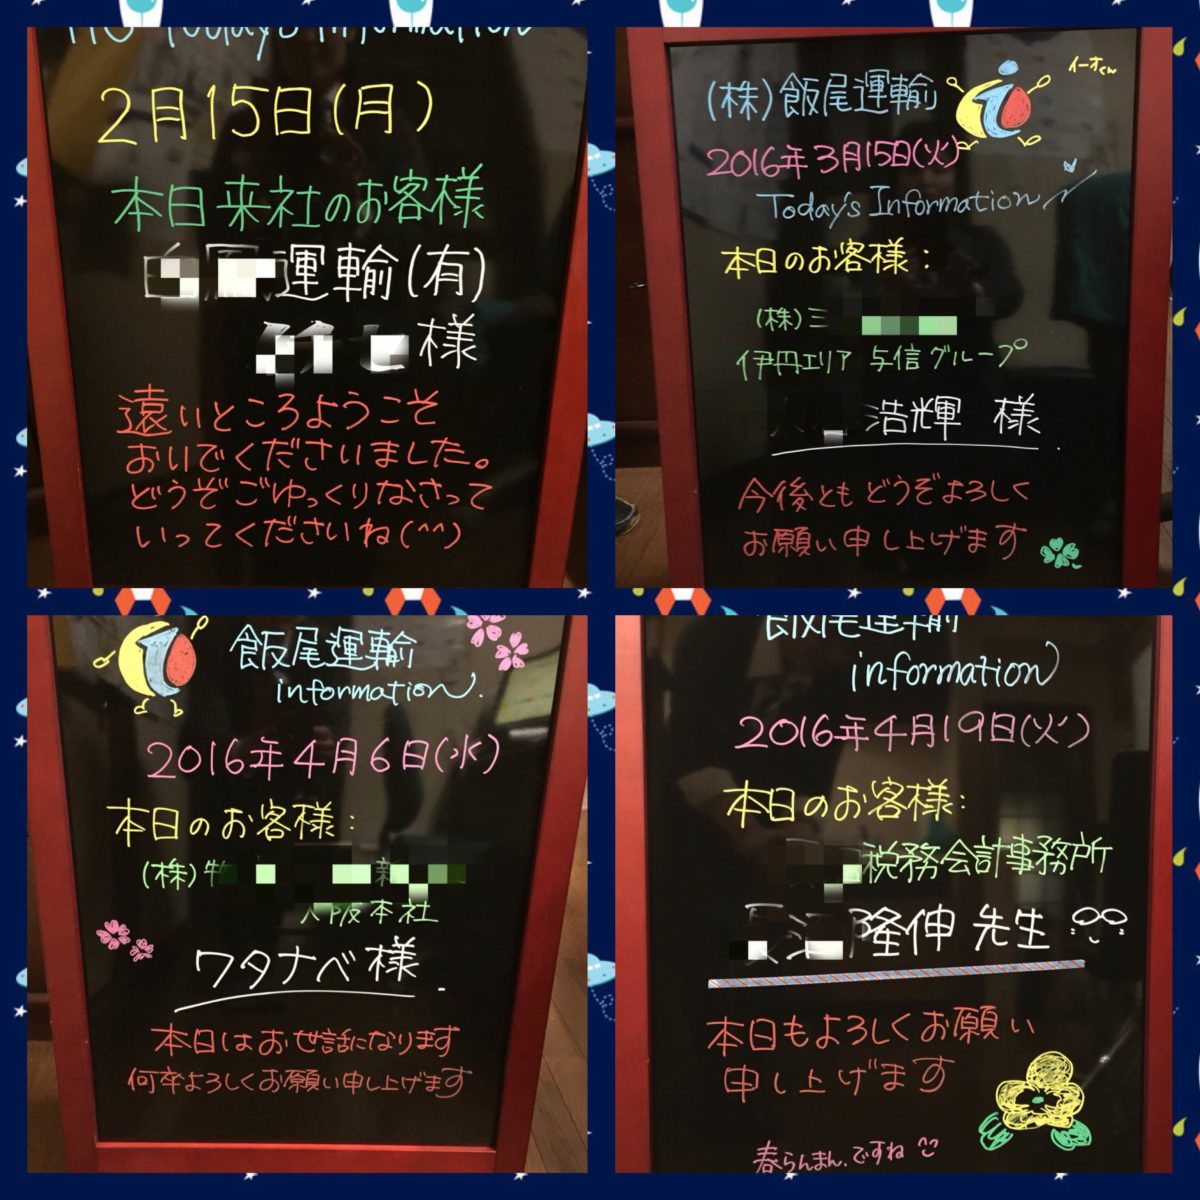 Today's Information
2月15日(月)
本日来社のお客様
運輸(有)
様
遠いところようこそ
おいでくださいました。
どうぞごゆっくりなさって
いってくださいね(^^)
(株)飯尾運輸
イーオくん
2016年3月15日(火)
Today's Information
本日のお客様:
(株)三
伊丹エリア 与信グループ
浩輝 様
今後ともどうぞよろしく
お願い申し上げます
飯尾運輸
information.
2016年4月6日(水)
本日のお客様:
(株)
大阪本社
ワタナベ様
本日はお世話になります
何卒よろしくお願い申し上げます
飯尾運輸
information
2016年4月19日(火)
本日のお客様:
税務会計事務所
隆伸 先生
本日もよろしくお願い
申し上げます
春らんまん。ですね